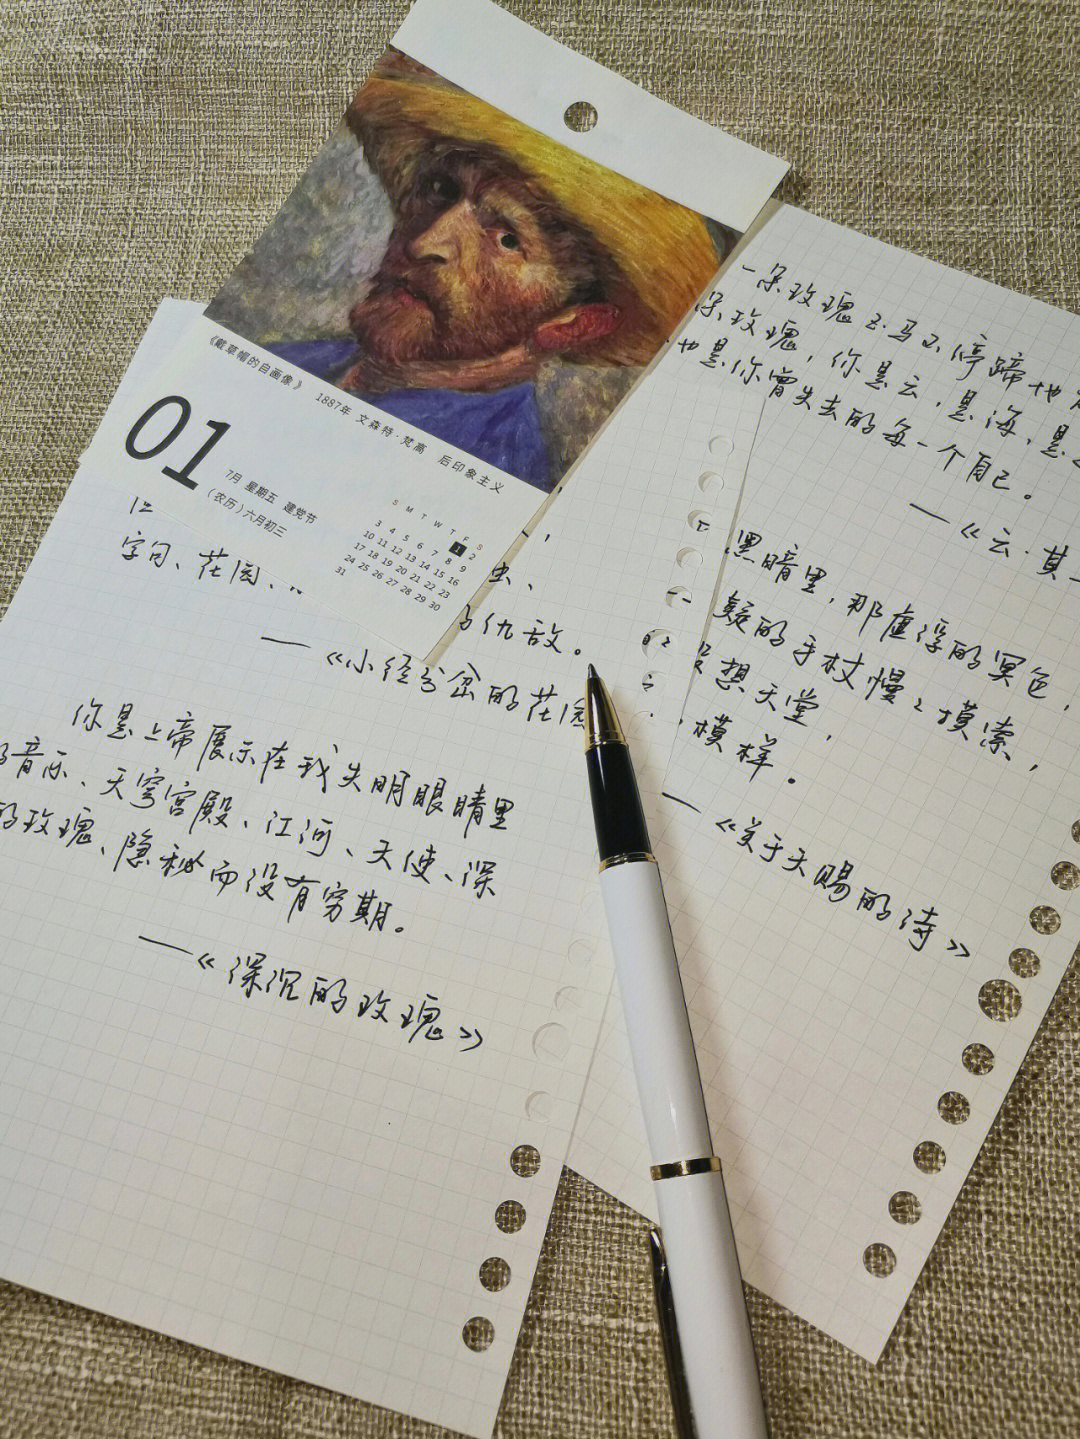 《戴草帽的自画像》
1887年 文森特·梵高 后印象主义
01
7月 星期五 建党节
（农历）六月初三
S M T W T F S
1 2
3 4 5 6 7 8 9
10 11 12 13 14 15 16
17 18 19 20 21 22 23
24 25 26 27 28 29 30
31
字句、花园、
虫、
仇敌。
——《小径分岔的花园
你是上帝展示在我失明眼睛里
的音乐、天穹宫殿、江河、天使、深
的玫瑰、隐秘而没有穷期。
——《深沉的玫瑰》
一朵玫瑰正马不停蹄地
朵玫瑰，你是云，是海，是
也是你曾失去的每一个自己。
——《云·其一
黑暗里，那虚浮的冥色，
疑的手杖慢慢摸索，
想天堂，
模样。
——《关于天赐的诗》